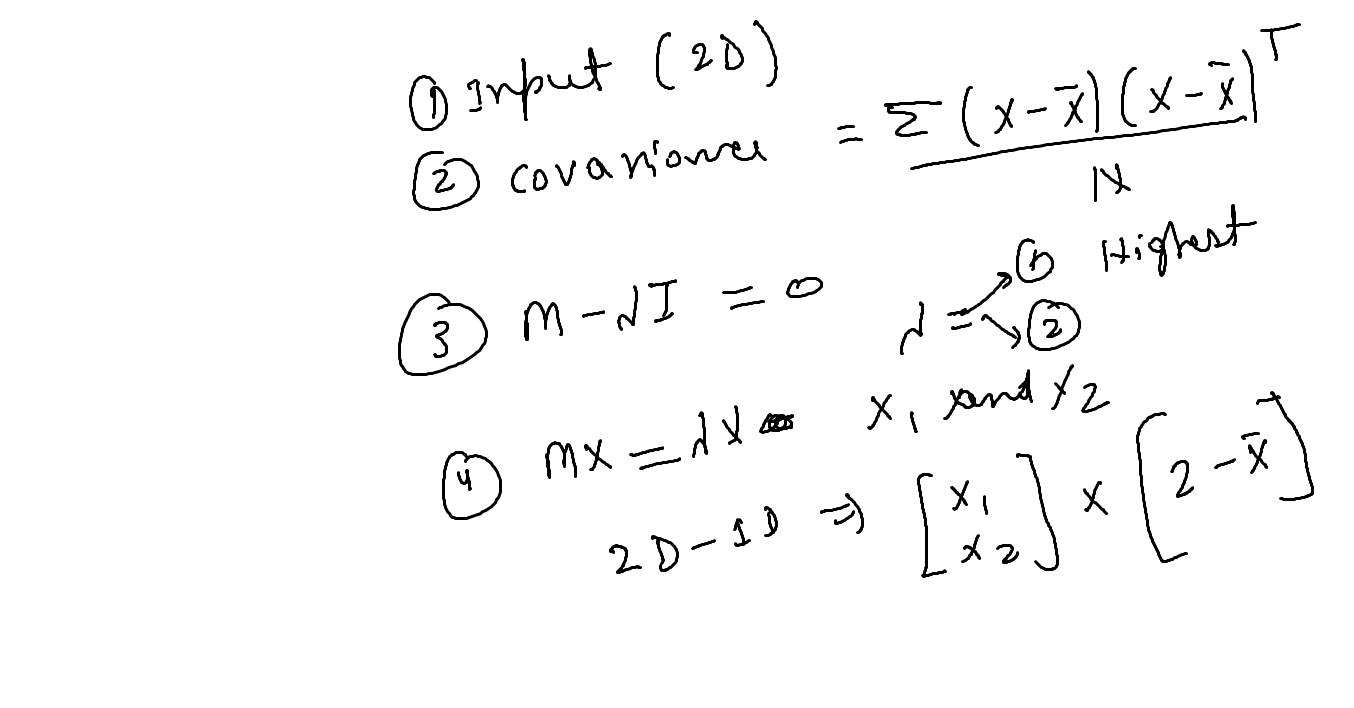 ① Input (2D)
② covariance = Σ(x-x̄)(x-x̄)ᵀ / N
③ M-λI = 0 λ = ① Highest ②
④ MX = λX x₁ and x₂
2D-1D ⇒ [x₁ x₂] × [2-x̄]